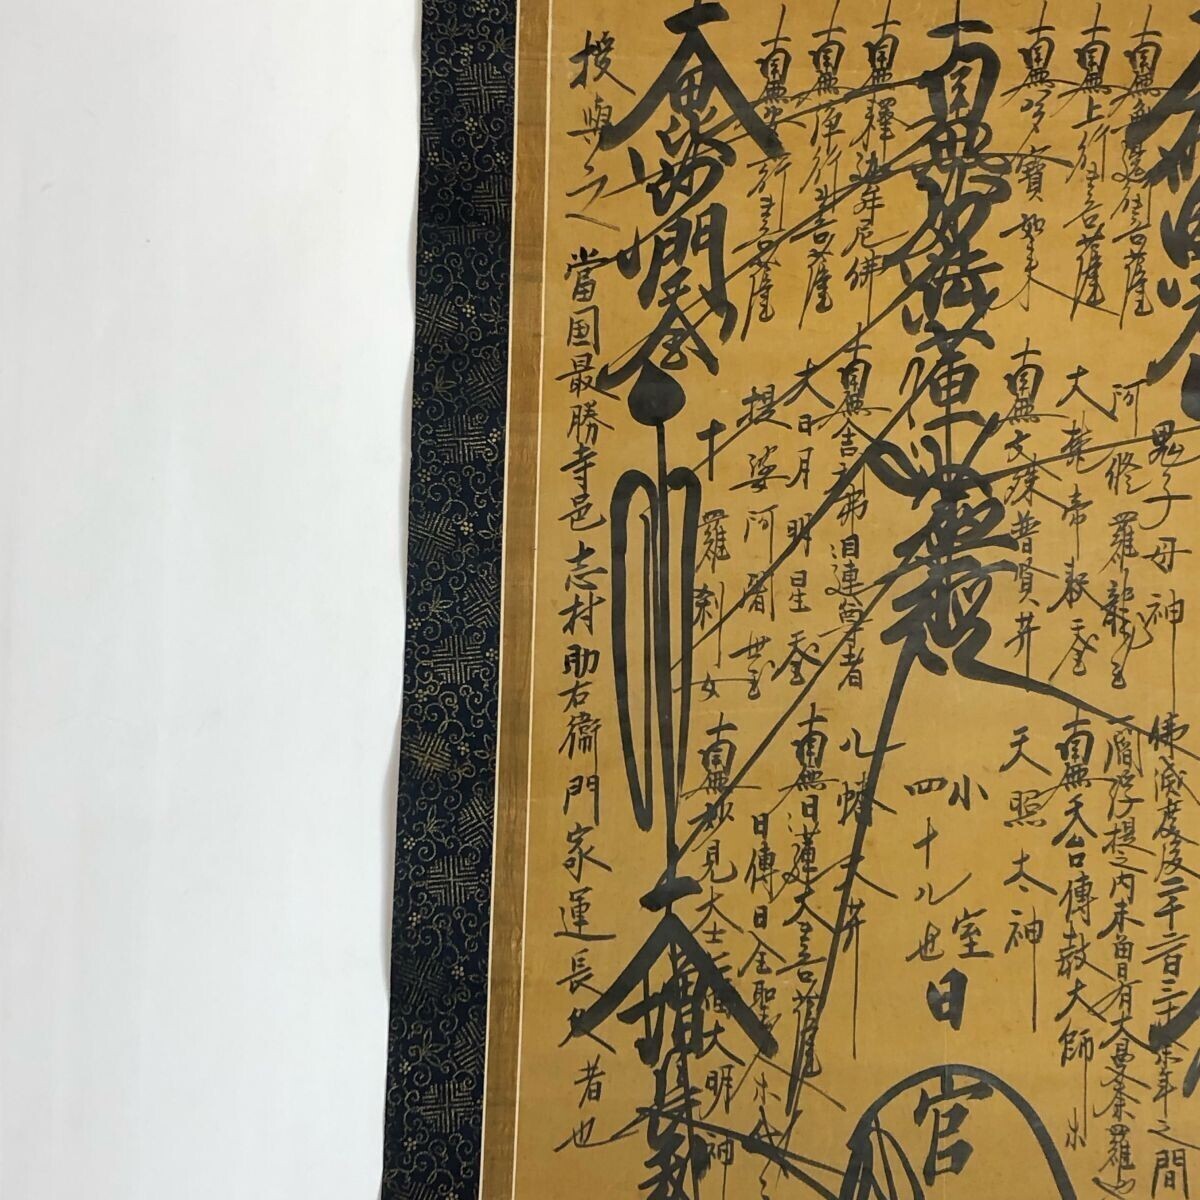 南無邊行菩薩
南無上行菩薩
南無多寶如来
南無妙法蓮華経
南無釋迦牟尼佛
南無浄行菩薩
南無安立行菩薩
大毘沙門天王
授與之
當国最勝寺邑志村助右衞門家運長久者也
鬼子母神
阿修羅龍王
大梵帝釈天王
南無文殊普賢井
南無舎利弗目連尊者
大日月明星天王
提婆阿闍世王
十羅刹女
佛滅度後二千二百三十余年之間
一閻浮提之内未曽有大曼荼羅也
南無天台傳教大師
天照太神
小室日
四十八世
八幡大井
南無日蓮大菩薩
日傳日全聖人
南無妙見大士
大明神
大増長
官